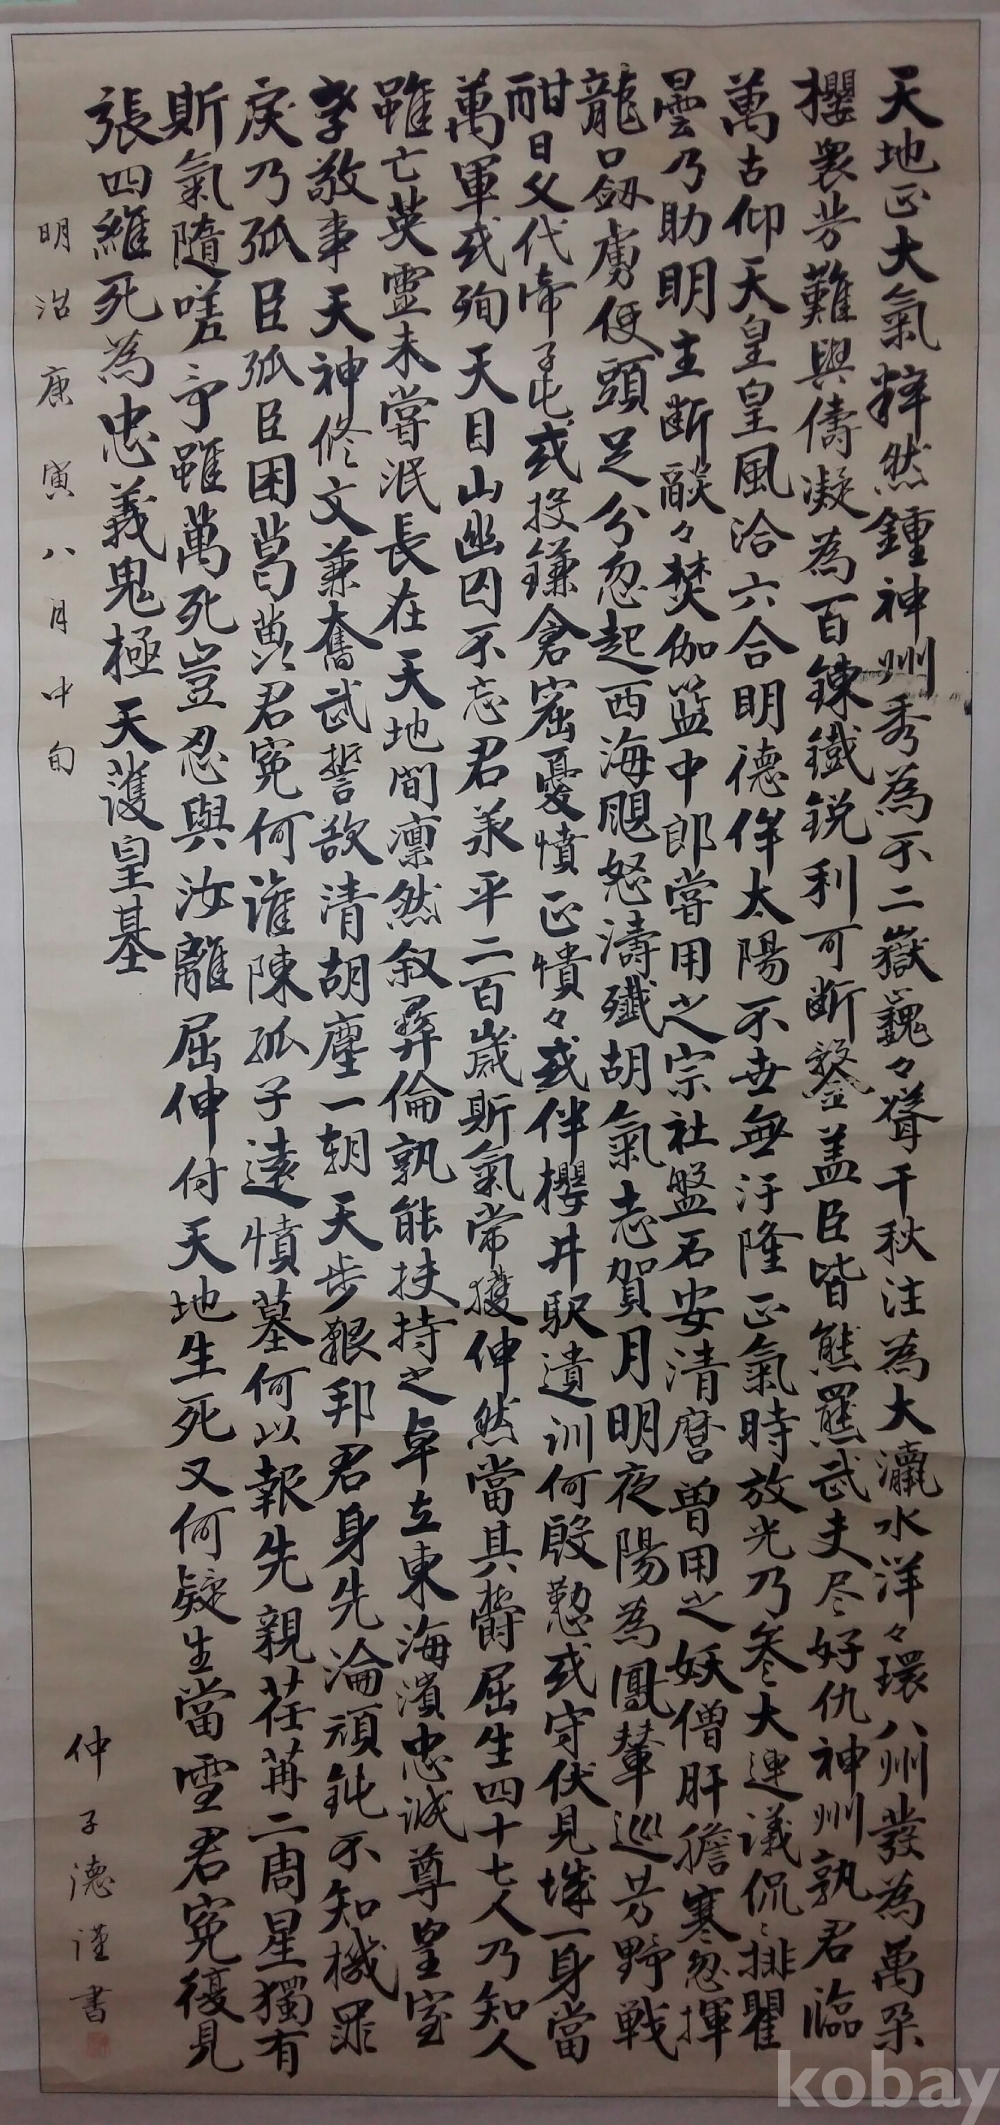 天地正大氣粹然鍾神州秀為不二嶽巍々聳千秋注為大瀛水洋々環八州發為萬朶
櫻衆芳難與儔凝為百鍊鐵銳利可斷鍪盖臣皆熊羆武夫尽好仇神州孰君臨
萬古仰天皇皇風洽六合明德侔太陽不世無汙隆正氣時放光乃参大連議侃〻排瞿
曇乃助明主断燄々焚伽藍中郎嘗用之宗社盤石安清麿曽用之妖僧肝膽寒忽揮
龍口劔虜使頭足分忽起西海颶怒濤殲胡氣志賀月明夜陽為鳳輦巡芳野戦
酣日又代帝子屯或投鎌倉窟憂憤正憒々或伴櫻井駅遺訓何殷懃或守伏見城一身當
萬軍或殉天目山幽囚不忘君羕平二百歳斯氣常獲伸然當其欝屈生四十七人乃知人
雖亡英靈未嘗泯長在天地間凛然叙彛倫孰能扶持之卓立東海濱忠誠尊皇室
孝敬事天神修文兼奮武誓欲清胡塵一朝天步艱邦君身先淪頑鈍不知機罪
戾乃孤臣孤臣困葛藟君冤何誰陳孤子遠憤墓何以報先親荏苒二周星獨有
斯氣隨嗟予雖萬死豈忍與汝離屈伸付天地生死又何疑生當雪君冤復見
張四維死為忠義鬼極天護皇基
明治庚寅八月中旬
仲子德謹書
kobay